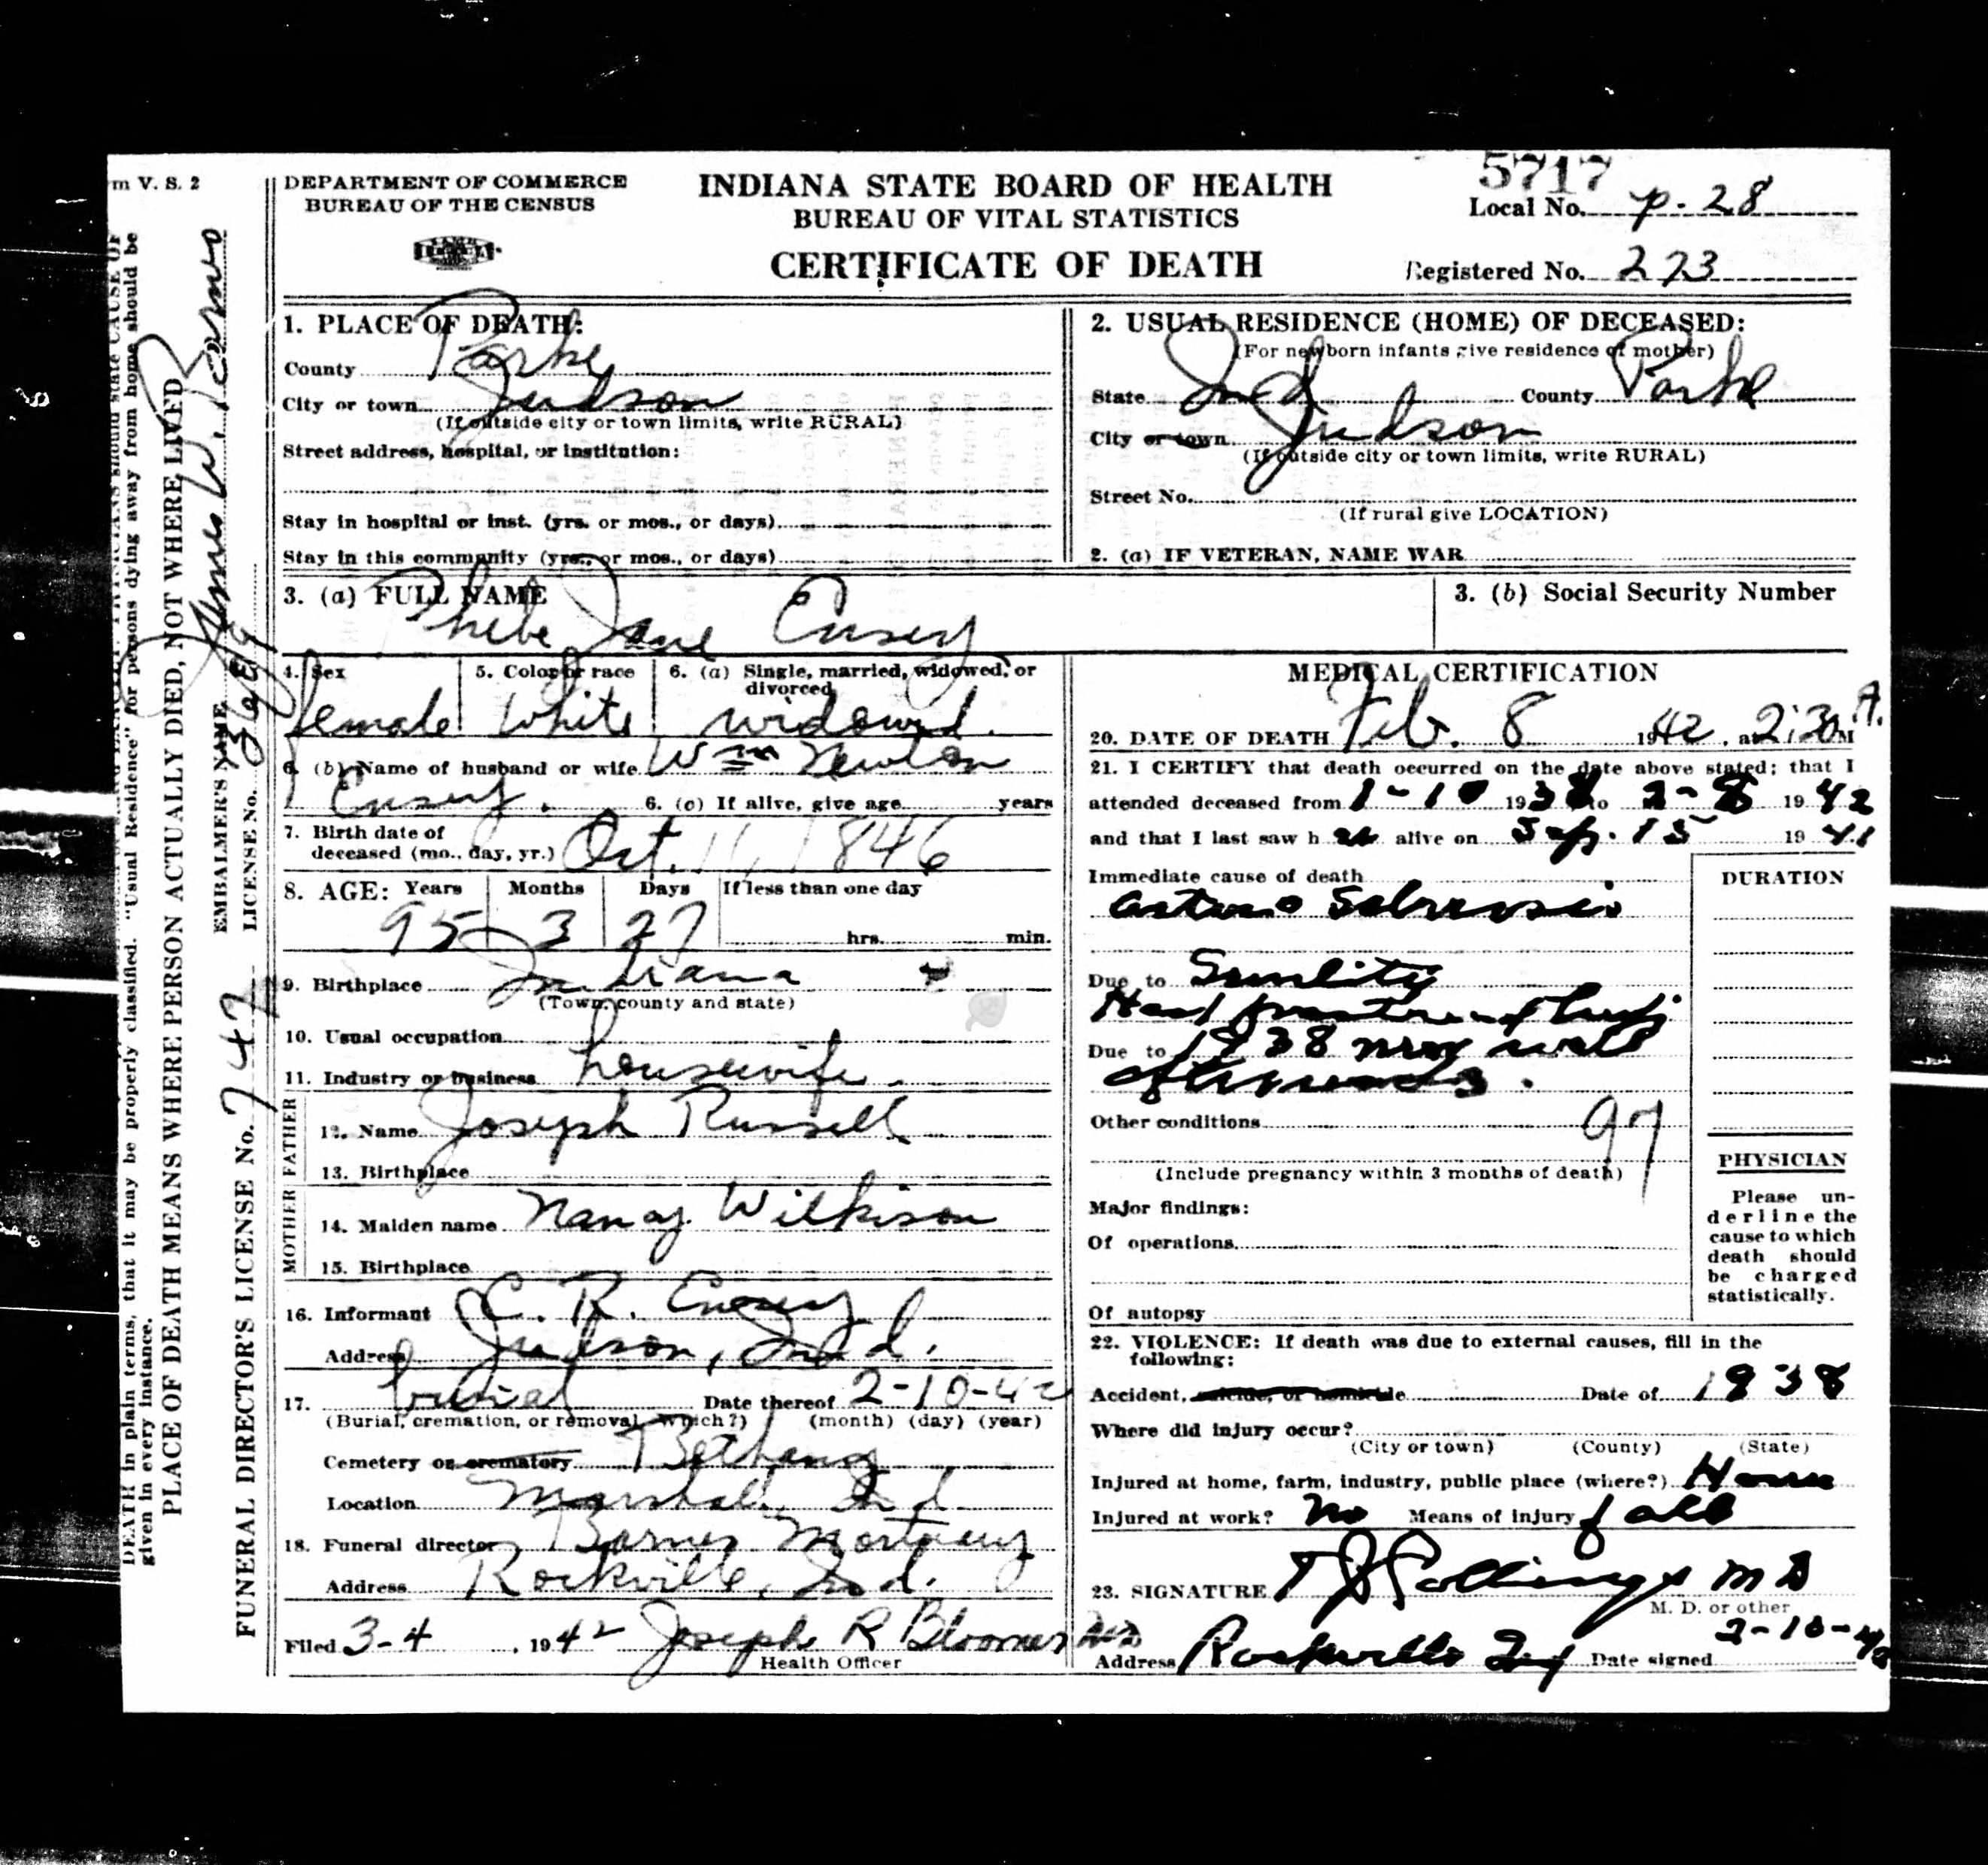 m V. S. 2
DEPARTMENT OF COMMERCE
BUREAU OF THE CENSUS
INDIANA STATE BOARD OF HEALTH
BUREAU OF VITAL STATISTICS
CERTIFICATE OF DEATH
5717
Local No. p-28
Registered No. 273
1. PLACE OF DEATH:
County Parke
City or town Judson
(If outside city or town limits, write RURAL)
Street address, hospital, or institution:
Stay in hospital or inst. (yrs. or mos., or days)
Stay in this community (yrs., or mos., or days)
2. USUAL RESIDENCE (HOME) OF DECEASED:
(For newborn infants give residence of mother)
State Ind County Parke
City or town Judson
(If outside city or town limits, write RURAL)
Street No.
(If rural give LOCATION)
2. (a) IF VETERAN, NAME WAR
3. (a) FULL NAME Phebe Jane Ensey
3. (b) Social Security Number
4. Sex female
5. Color or race White
6. (a) Single, married, widowed, or divorced widowed.
6. (b) Name of husband or wife Wm Newton
Ensey. 6. (c) If alive, give age years
7. Birth date of
deceased (mo., day, yr.) Oct. 11, 1846
8. AGE: Years Months Days If less than one day
95 3 27 hrs. min.
9. Birthplace Indiana
(Town, county and state)
10. Usual occupation
11. Industry or business housewife.
FATHER
12. Name Joseph Russell
13. Birthplace
MOTHER
14. Maiden name Nancy Wilkison
15. Birthplace
16. Informant C. R. Ensey
Address Judson, Ind.
17. burial Date thereof 2-10-42
(Burial, cremation, or removal, which?) (month) (day) (year)
Cemetery or crematory Bethany
Location Marshall, Ind.
18. Funeral director Barnes Mortuary
Address Rockville, Ind.
Filed 3-4, 1942 Joseph R Bloomer MD
Health Officer
MEDICAL CERTIFICATION
20. DATE OF DEATH Feb. 8 1942, at 2:30 A. M
21. I CERTIFY that death occurred on the date above stated; that I
attended deceased from 1-10 1938 to 2-8 1942
and that I last saw h er alive on Sep. 15 1941
Immediate cause of death
Due to Senility
Due to 1938
Other conditions 97
(Include pregnancy within 3 months of death)
Major findings:
Of operations
Of autopsy
DURATION
PHYSICIAN
Please un-
derline the
cause to which
death should
be charged
statistically.
22. VIOLENCE: If death was due to external causes, fill in the
following:
Accident, suicide, or homicide Date of 1938
Where did injury occur?
(City or town) (County) (State)
Injured at home, farm, industry, public place (where?) Home
Injured at work? No Means of injury fall
23. SIGNATURE Collings MD
M. D. or other
Address Rockville Ind Date signed 2-10-42
DEATH in plain terms, that it may be properly classified. "Usual Residence" for persons dying away from home should be
given in every instance.
PLACE OF DEATH MEANS WHERE PERSON ACTUALLY DIED, NOT WHERE LIVED
EMBALMER'S NAME James W. Barnes
LICENSE No.
FUNERAL DIRECTOR'S LICENSE No. 747